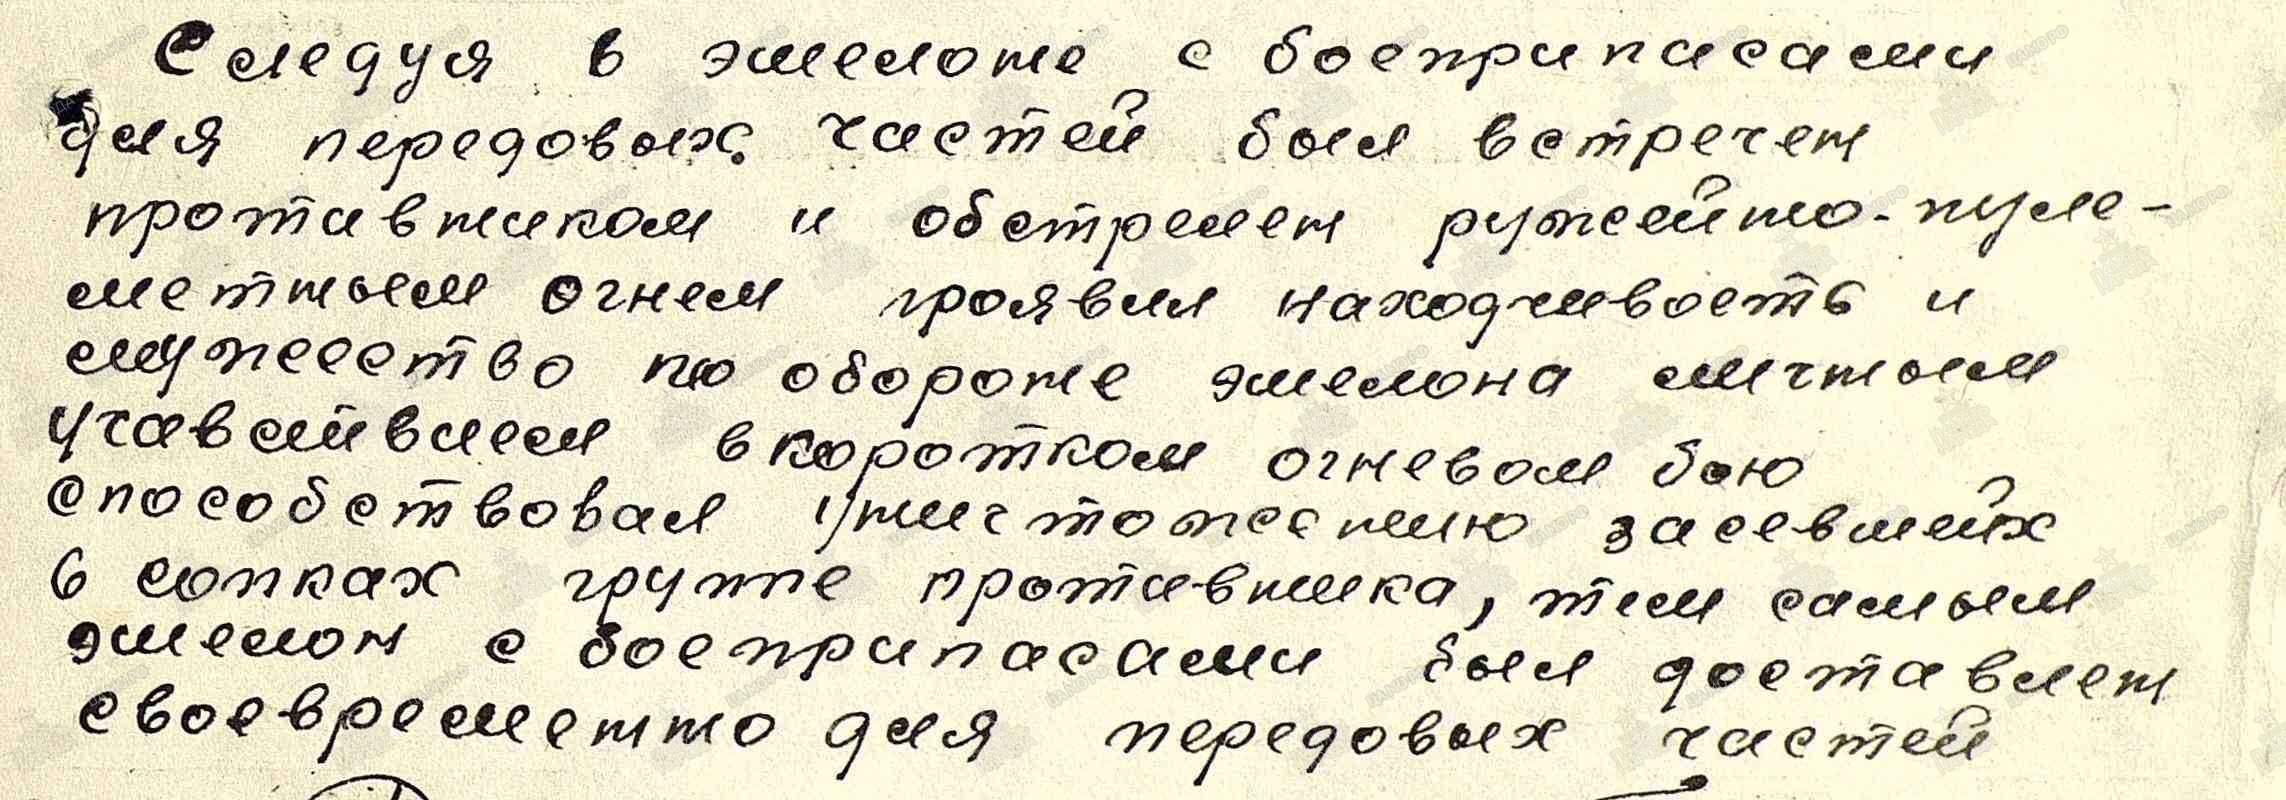 Следуя в эшелоне с боеприпасами
для передовых частей был встречен
противником и обстрелен ружейно-пуле-
метным огнем проявил находчивость и
мужество по обороне эшелона личным
учавсивием в коротком огневом бою
способствовал уничтожению засевшийх
в сопках группе противника, тем самым
эшелон с боеприпасами был доставлен
своевременно для передовых частей